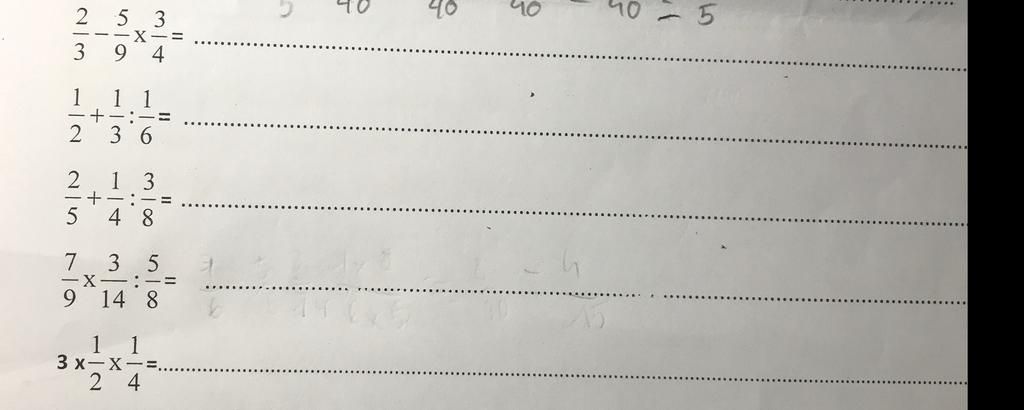 5 40 40 40 - 40 = 5
2/3 - 5/9 x 3/4 = ........................................
1/2 + 1/3 : 1/6 = ........................................
2/5 + 1/4 : 3/8 = ........................................
7/9 x 3/14 : 5/8 = ........................................
3 x 1/2 x 1/4 = ........................................